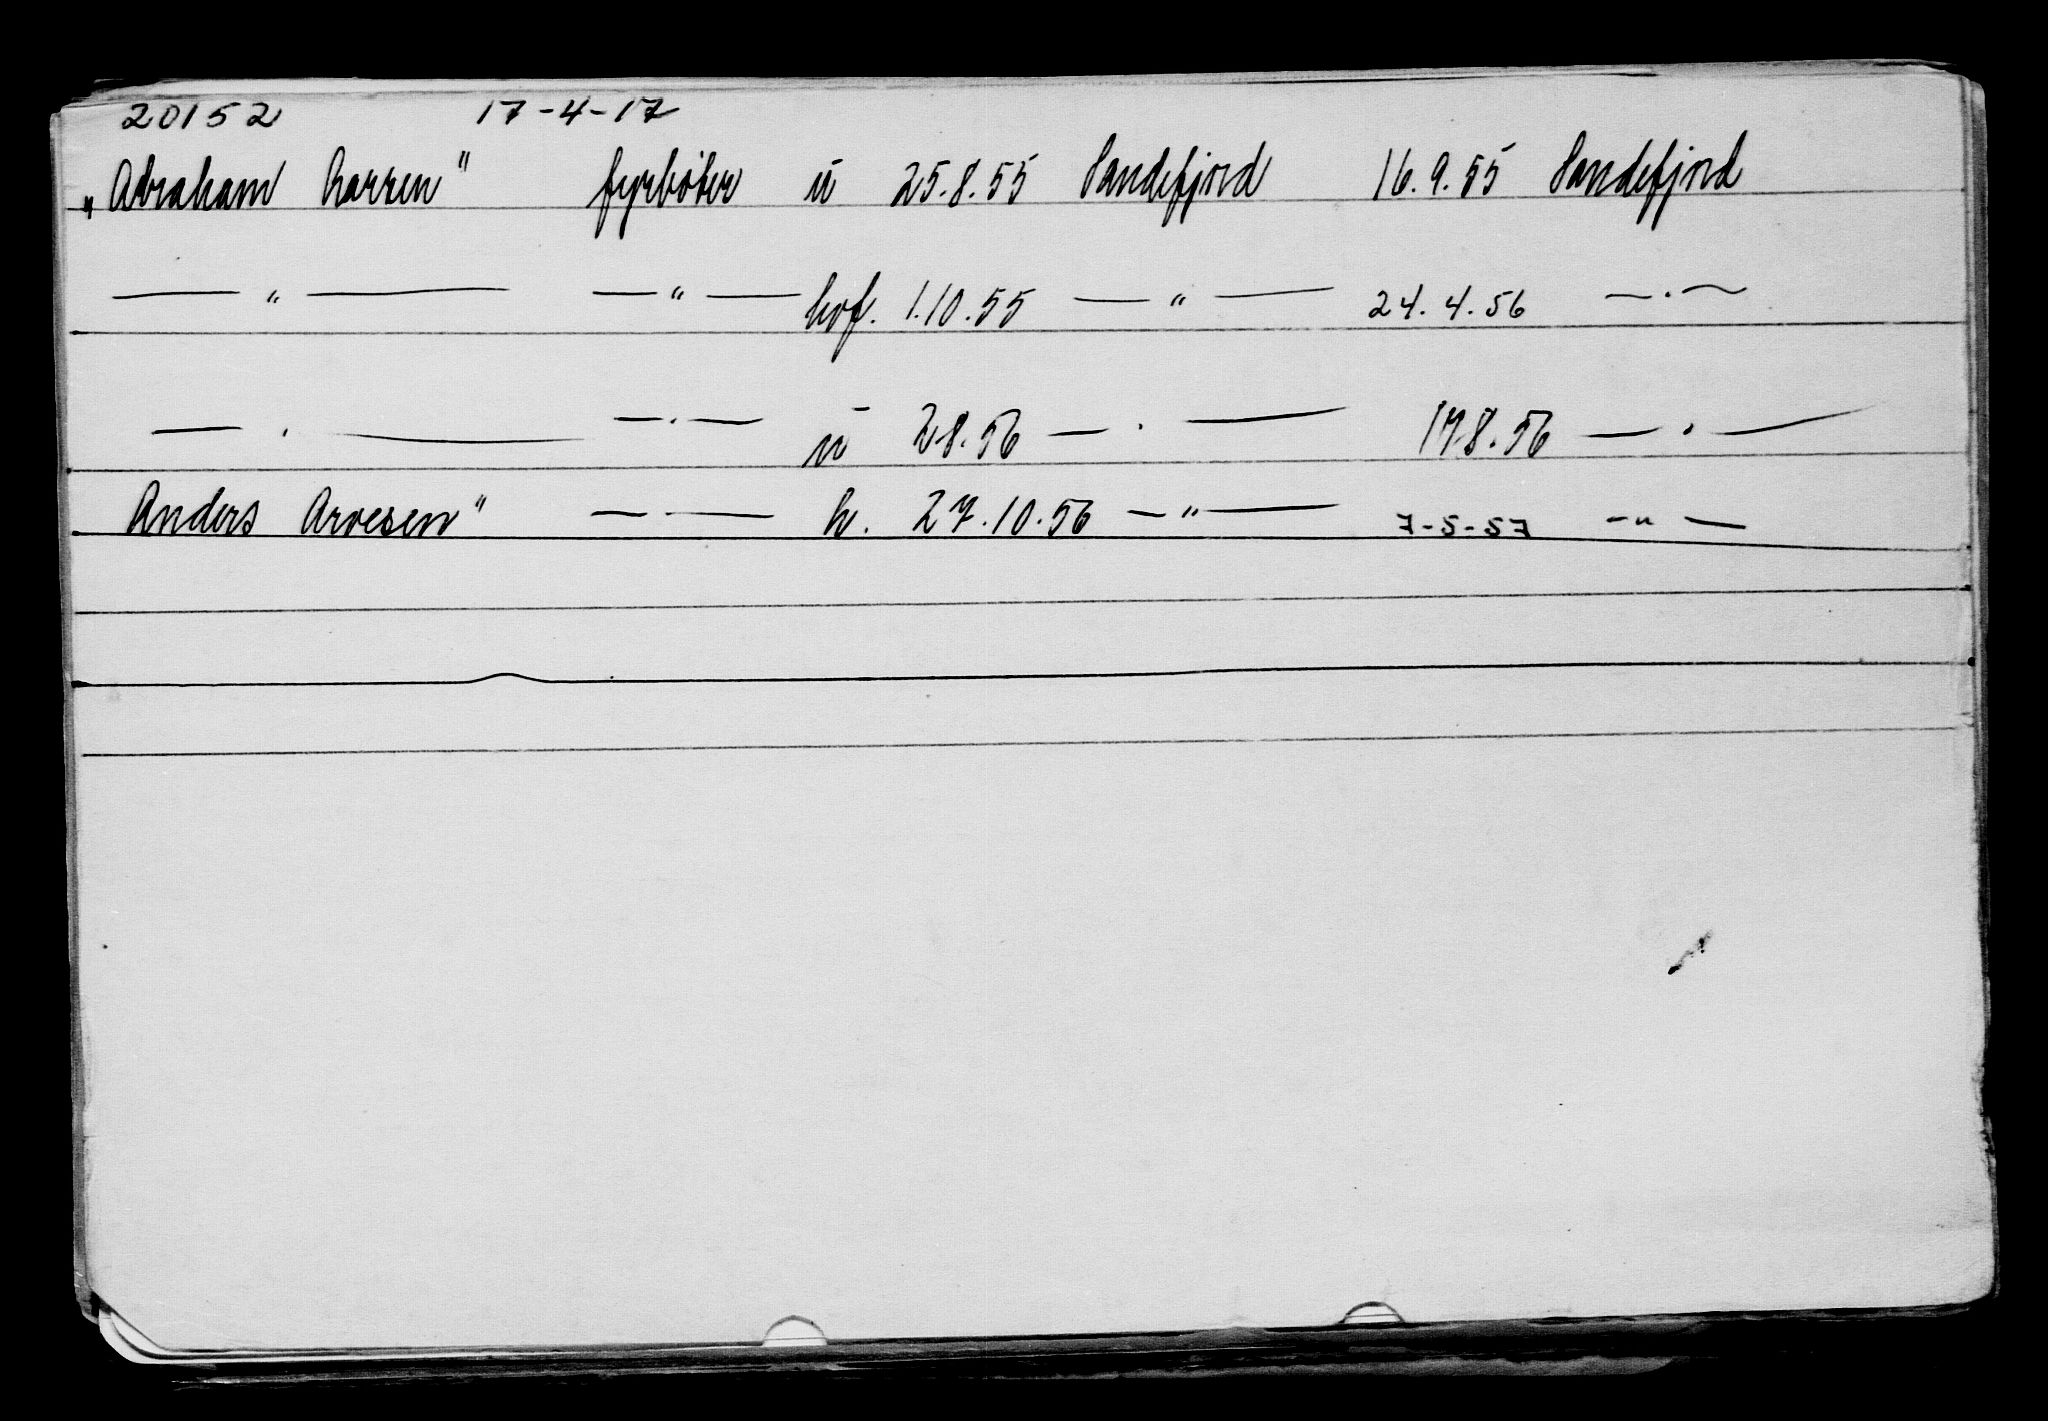 20152 17-4-17
"Abraham Larsen" fyrbøter u 25.8.55 Sandefjord 16.9.55 Sandefjord
— " — — " — hvf. 1.10.55 — " — 24.4.56 — " —
— " — — " — u 2.8.56 — " — 17.8.56 — " —
Anders Arvesen" — " — h. 27.10.56 — " — 7-5-57 — " —